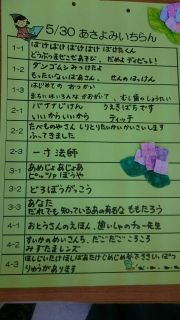 5/30 あさよみいちらん
1-1 ばけばけばけばけ ばけたくん
どうぶつまぜこぜあそび、だめよ デイビッド!
1-2 ダンゴムシみっけたよ
もったいないばあさん、せんのはっけん
1-3 はじめての おつかい
まちにはいろんな かおがいて、むし歯
2-1 バナナじけん うえきばちです
いいからいいから ティッチ
2-2 たべものやさん しりとりたいかいかいさいします
ふってきました
2-3 一寸法師
3-1 あめじょあじょあ
ピッツァぼうや
3-2 どろぼうがっこう
3-3 あなた
だれでも知っているあの有名な ももたろう
4-1 おとうさんのえほん、歯いしゃのチュー先生
4-2 すいかのめいさんち、だごだごころころ
みずたまレンズ
4-3 ほしじいたけほしばあたけじめじめ
りゅうがあります